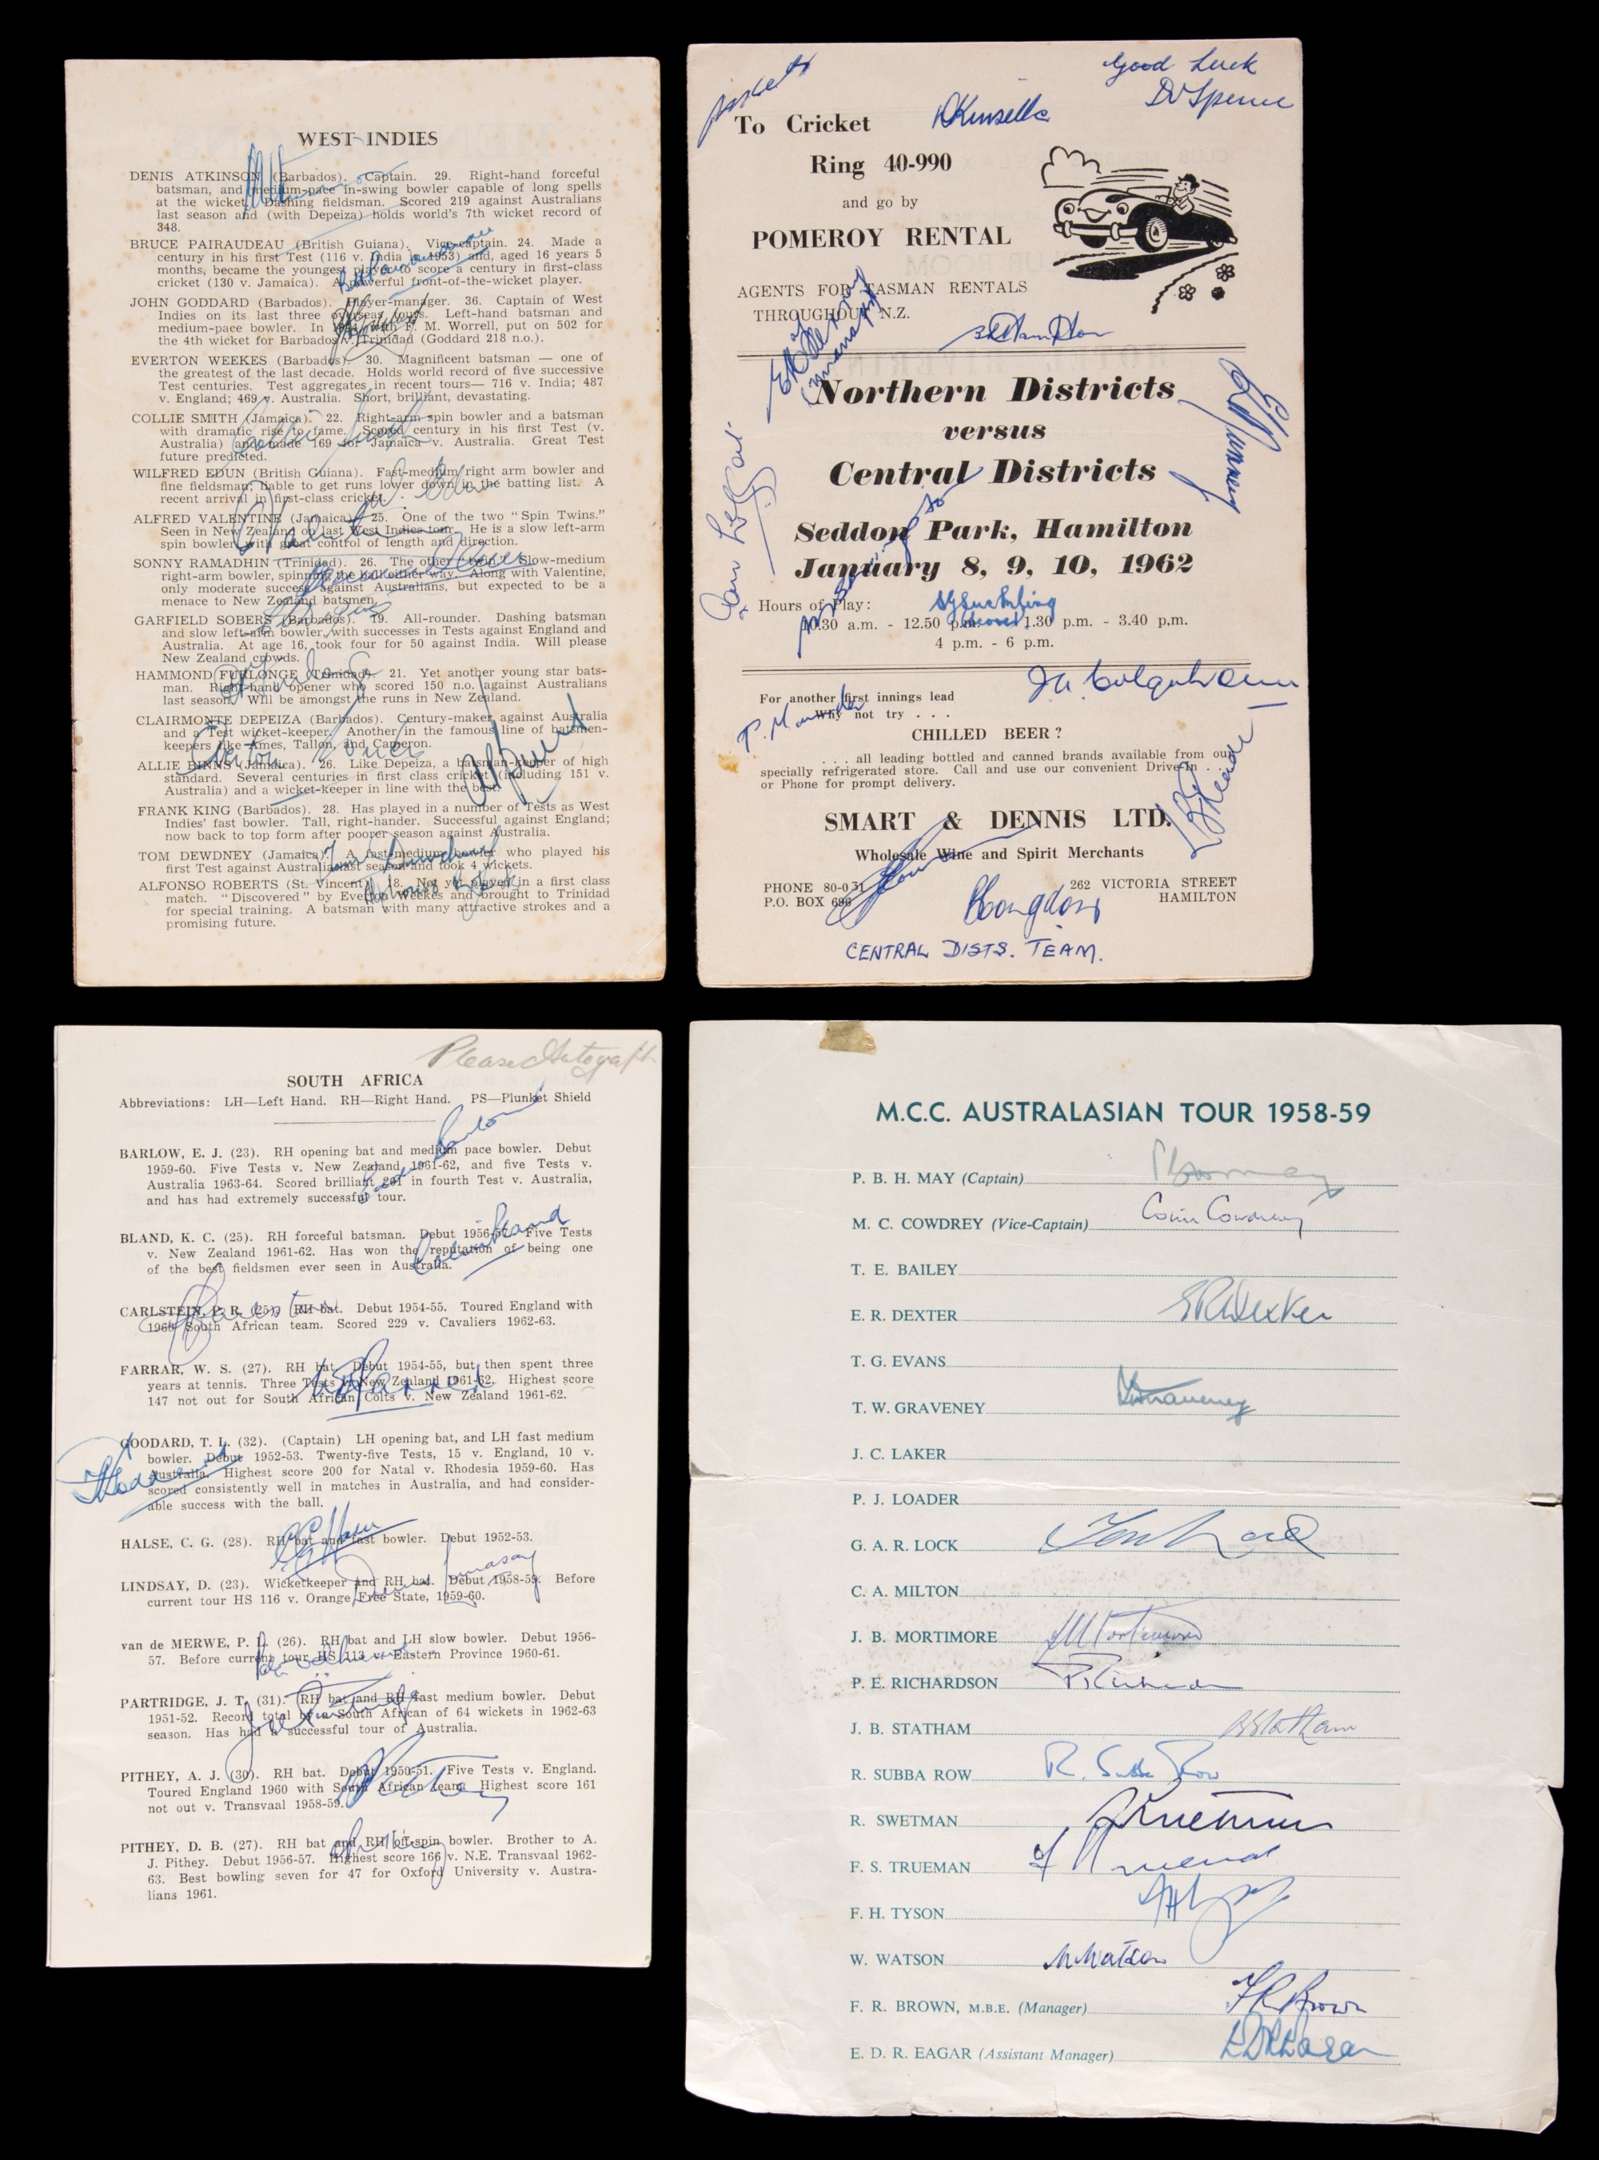 WEST INDIES
DENIS ATKINSON (Barbados). Captain. 29. Right-hand forceful
batsman, and medium-pace in-swing bowler capable of long spells
at the wicket. Dashing fieldsman. Scored 219 against Australians
last season and (with Depeiza) holds world's 7th wicket record of
348.
BRUCE PAIRAUDEAU (British Guiana). Vice-captain. 24. Made a
century in his first Test (116 v. India in 1953) and, aged 16 years 5
months, became the youngest player to score a century in first-class
cricket (130 v. Jamaica). A powerful front-of-the-wicket player.
JOHN GODDARD (Barbados). Player-manager. 36. Captain of West
Indies on its last three overseas tours. Left-hand batsman and
medium-pace bowler. In with F. M. Worrell, put on 502 for
the 4th wicket for Barbados v. Trinidad (Goddard 218 n.o.).
EVERTON WEEKES (Barbados). 30. Magnificent batsman — one of
the greatest of the last decade. Holds world record of five successive
Test centuries. Test aggregates in recent tours— 716 v. India; 487
v. England; 469 v. Australia. Short, brilliant, devastating.
COLLIE SMITH (Jamaica). 22. Right-arm spin bowler and a batsman
with dramatic rise to fame. Scored century in his first Test (v.
Australia) and made 169 for Jamaica v. Australia. Great Test
future predicted.
Collie Smith
WILFRED EDUN (British Guiana). Fast-medium right arm bowler and
fine fieldsman; liable to get runs lower down in the batting list. A
recent arrival in first-class cricket.
W. Edun
ALFRED VALENTINE (Jamaica). 25. One of the two "Spin Twins."
Seen in New Zealand on last West Indies tour. He is a slow left-arm
spin bowler with great control of length and direction.
SONNY RAMADHIN (Trinidad). 26. The other "twin." Slow-medium
right-arm bowler, spinning the ball either way. Along with Valentine,
only moderate success against Australians, but expected to be a
menace to New Zealand batsmen.
GARFIELD SOBERS (Barbados). 19. All-rounder. Dashing batsman
and slow left-arm bowler, with successes in Tests against England and
Australia. At age 16, took four for 50 against India. Will please
New Zealand crowds.
HAMMOND FURLONGE (Trinidad). 21. Yet another young star bats-
man. Right-hand opener who scored 150 n.o. against Australians
last season. Will be amongst the runs in New Zealand.
CLAIRMONTE DEPEIZA (Barbados). Century-maker against Australia
and a Test wicket-keeper. Another in the famous line of batsmen-
keepers like Ames, Tallon, and Cameron.
ALLIE BINNS (Jamaica). 26. Like Depeiza, a batsman-keeper of high
standard. Several centuries in first class cricket (including 151 v.
Australia) and a wicket-keeper in line with the best.
FRANK KING (Barbados). 28. Has played in a number of Tests as West
Indies' fast bowler. Tall, right-hander. Successful against England;
now back to top form after poorer season against Australia.
TOM DEWDNEY (Jamaica). A fast-medium bowler who played his
first Test against Australia last season and took 4 wickets.
Tom Dewdney
ALFONSO ROBERTS (St. Vincent). 18. Not yet played in a first class
match. "Discovered" by Everton Weekes and brought to Trinidad
for special training. A batsman with many attractive strokes and a
promising future.
Alphonso Roberts
Good Luck
DV Spence
To Cricket
D Kinsella
Ring 40-990
and go by
POMEROY RENTAL
AGENTS FOR TASMAN RENTALS
THROUGHOUT N.Z.
Northern Districts
versus
Central Districts
Seddon Park, Hamilton
January 8, 9, 10, 1962
Hours of Play:
10.30 a.m. - 12.50 p.m. 1.30 p.m. - 3.40 p.m.
4 p.m. - 6 p.m.
For another first innings lead
Why not try . . .
CHILLED BEER?
. . . all leading bottled and canned brands available from our
specially refrigerated store. Call and use our convenient Drive-In . . .
or Phone for prompt delivery.
SMART & DENNIS LTD.
Wholesale Wine and Spirit Merchants
PHONE 80-031
P.O. BOX 696
262 VICTORIA STREET
HAMILTON
B Congdon
CENTRAL DISTS. TEAM.
Please Autograph
SOUTH AFRICA
Abbreviations: LH—Left Hand. RH—Right Hand. PS—Plunket Shield
BARLOW, E. J. (23). RH opening bat and medium pace bowler. Debut
1959-60. Five Tests v. New Zealand 1961-62, and five Tests v.
Australia 1963-64. Scored brilliant 201 in fourth Test v. Australia,
and has had extremely successful tour.
Eddie Barlow
BLAND, K. C. (25). RH forceful batsman. Debut 1956-57. Five Tests
v. New Zealand 1961-62. Has won the reputation of being one
of the best fieldsmen ever seen in Australia.
Colin Bland
CARLSTEIN, P. R. (25). RH bat. Debut 1954-55. Toured England with
1960 South African team. Scored 229 v. Cavaliers 1962-63.
FARRAR, W. S. (27). RH bat. Debut 1954-55, but then spent three
years at tennis. Three Tests v. New Zealand 1961-62. Highest score
147 not out for South African Colts v. New Zealand 1961-62.
WS Farrer
GOODARD, T. L. (32). (Captain) LH opening bat, and LH fast medium
bowler. Debut 1952-53. Twenty-five Tests, 15 v. England, 10 v.
Australia. Highest score 200 for Natal v. Rhodesia 1959-60. Has
scored consistently well in matches in Australia, and had consider-
able success with the ball.
HALSE, C. G. (28). RH bat and fast bowler. Debut 1952-53.
LINDSAY, D. (23). Wicketkeeper and RH bat. Debut 1958-59. Before
current tour HS 116 v. Orange Free State, 1959-60.
Denis Lindsay
van de MERWE, P. L. (26). RH bat and LH slow bowler. Debut 1956-
57. Before current tour HS 113 v. Eastern Province 1960-61.
PARTRIDGE, J. T. (31). RH bat and RH fast medium bowler. Debut
1951-52. Record total by a South African of 64 wickets in 1962-63
season. Has had a successful tour of Australia.
Joe Partridge
PITHEY, A. J. (30). RH bat. Debut 1950-51. Five Tests v. England.
Toured England 1960 with South African team. Highest score 161
not out v. Transvaal 1958-59.
PITHEY, D. B. (27). RH bat and RH off-spin bowler. Brother to A.
J. Pithey. Debut 1956-57. Highest score 166 v. N.E. Transvaal 1962-
63. Best bowling seven for 47 for Oxford University v. Austra-
lians 1961.
M.C.C. AUSTRALASIAN TOUR 1958-59
P. B. H. MAY (Captain)
M. C. COWDREY (Vice-Captain) Colin Cowdrey
T. E. BAILEY
E. R. DEXTER ER Dexter
T. G. EVANS
T. W. GRAVENEY TW Graveney
J. C. LAKER
P. J. LOADER
G. A. R. LOCK Tony Lock
C. A. MILTON
J. B. MORTIMORE
P. E. RICHARDSON P Richardson
J. B. STATHAM JB Statham
R. SUBBA ROW R. Subba Row
R. SWETMAN R Swetman
F. S. TRUEMAN F S Trueman
F. H. TYSON FH Tyson
W. WATSON W Watson
F. R. BROWN, M.B.E. (Manager) F R Brown
E. D. R. EAGAR (Assistant Manager) EDR Eagar